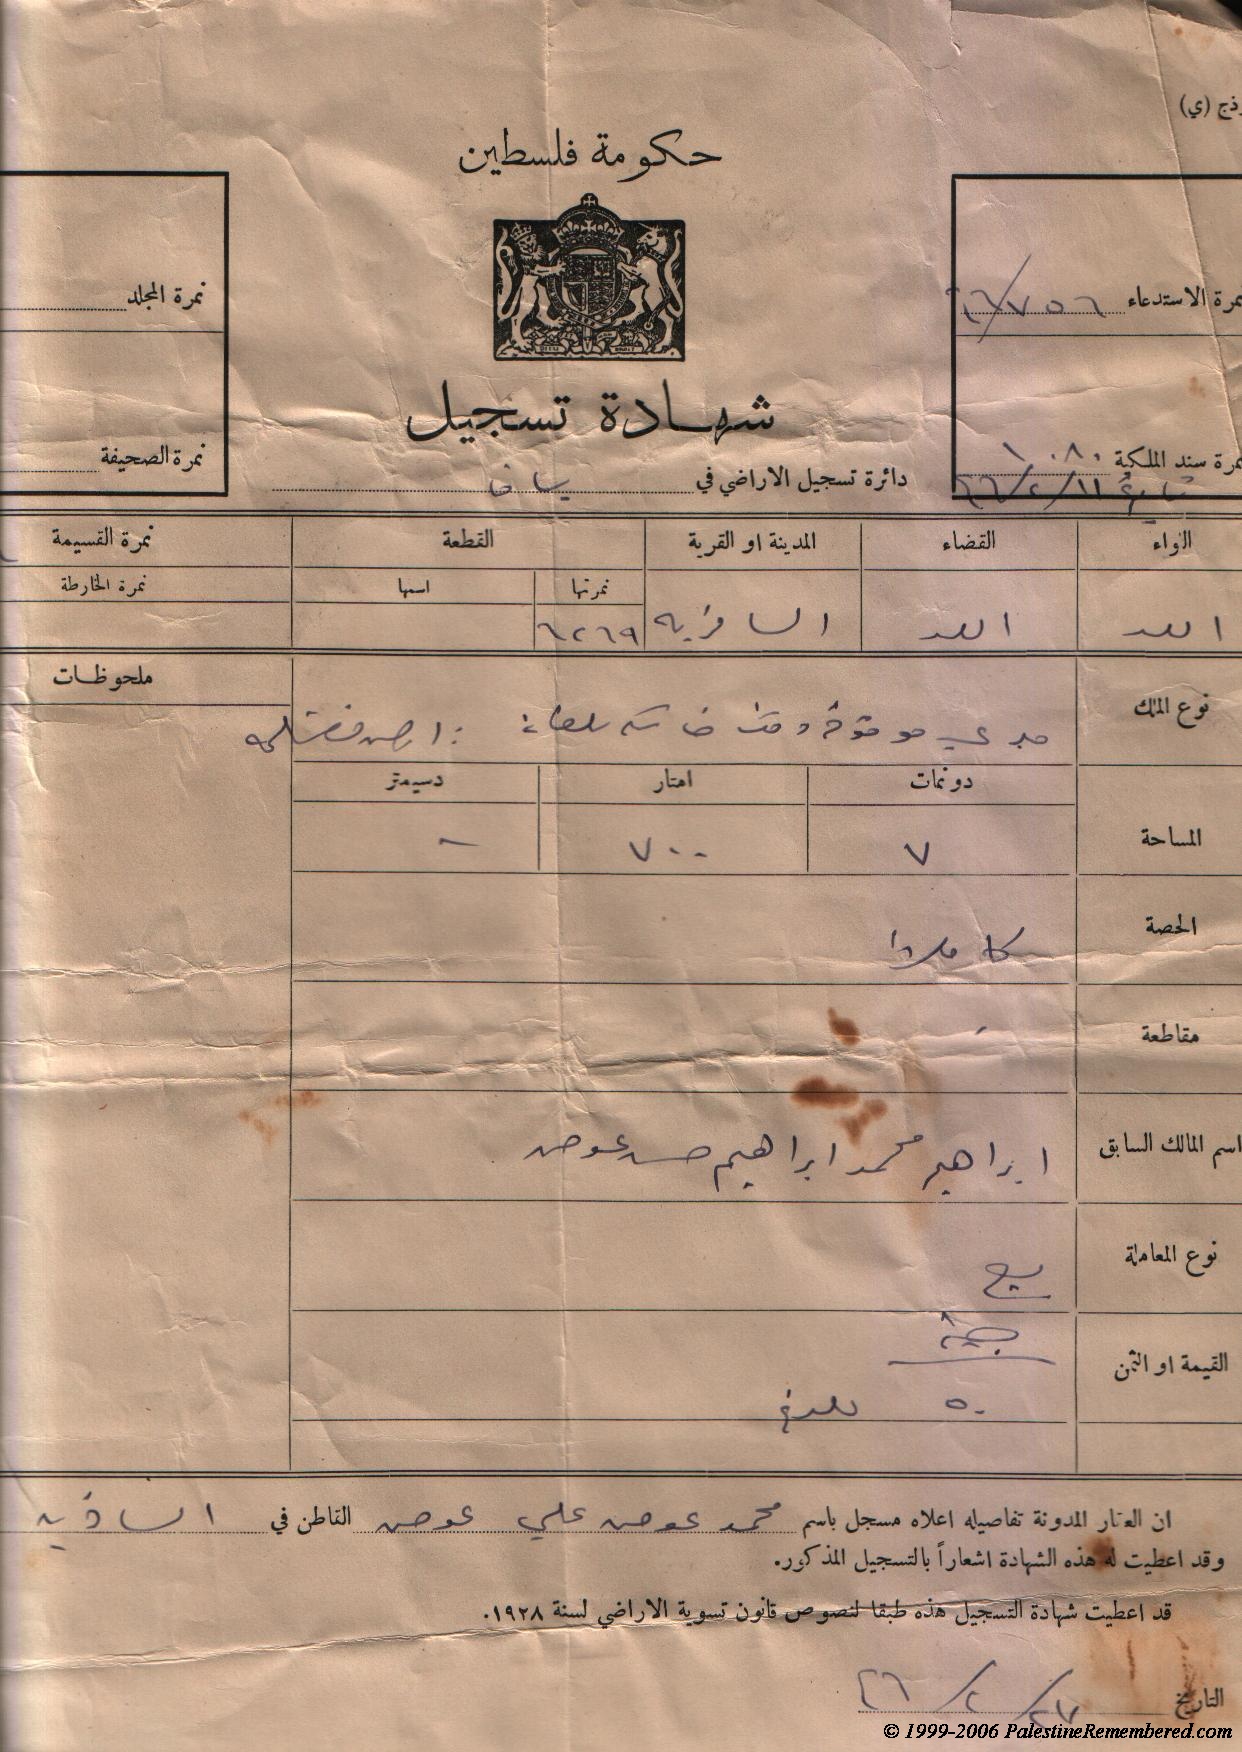 ذج (ي)
حكومة فلسطين
نمرة المجلد
نمرة الاستدعاء
شهادة تسجيل
نمرة الصحيفة
مرة سند الملكية ١٠٨٠
دائرة تسجيل الاراضي في يافا
الواء القضاء المدينة او القرية القطعة نمرة القسيمة
نمرتها اسمها نمرة الخارطة
اللد اللد السافريه
ملحوظات
نوع الملك
دونمات امتار دسيمتر
المساحة ٧ ٧٠٠ -
الحصة كاملا
مقاطعة
اسم المالك السابق ابراهيم محمد ابراهيم حسن عوض
نوع المعاملة بيع
جنيه
القيمة او الثمن ٥٠
ان العقار المدونة تفاصيله اعلاه مسجل باسم محمد عوض علي عوض القاطن في السافريه
وقد اعطيت له هذه الشهادة اشعاراً بالتسجيل المذكور.
قد اعطيت شهادة التسجيل هذه طبقا لنصوص قانون تسوية الاراضي لسنة ١٩٢٨.
التاريخ
© 1999-2006 PalestineRemembered.com